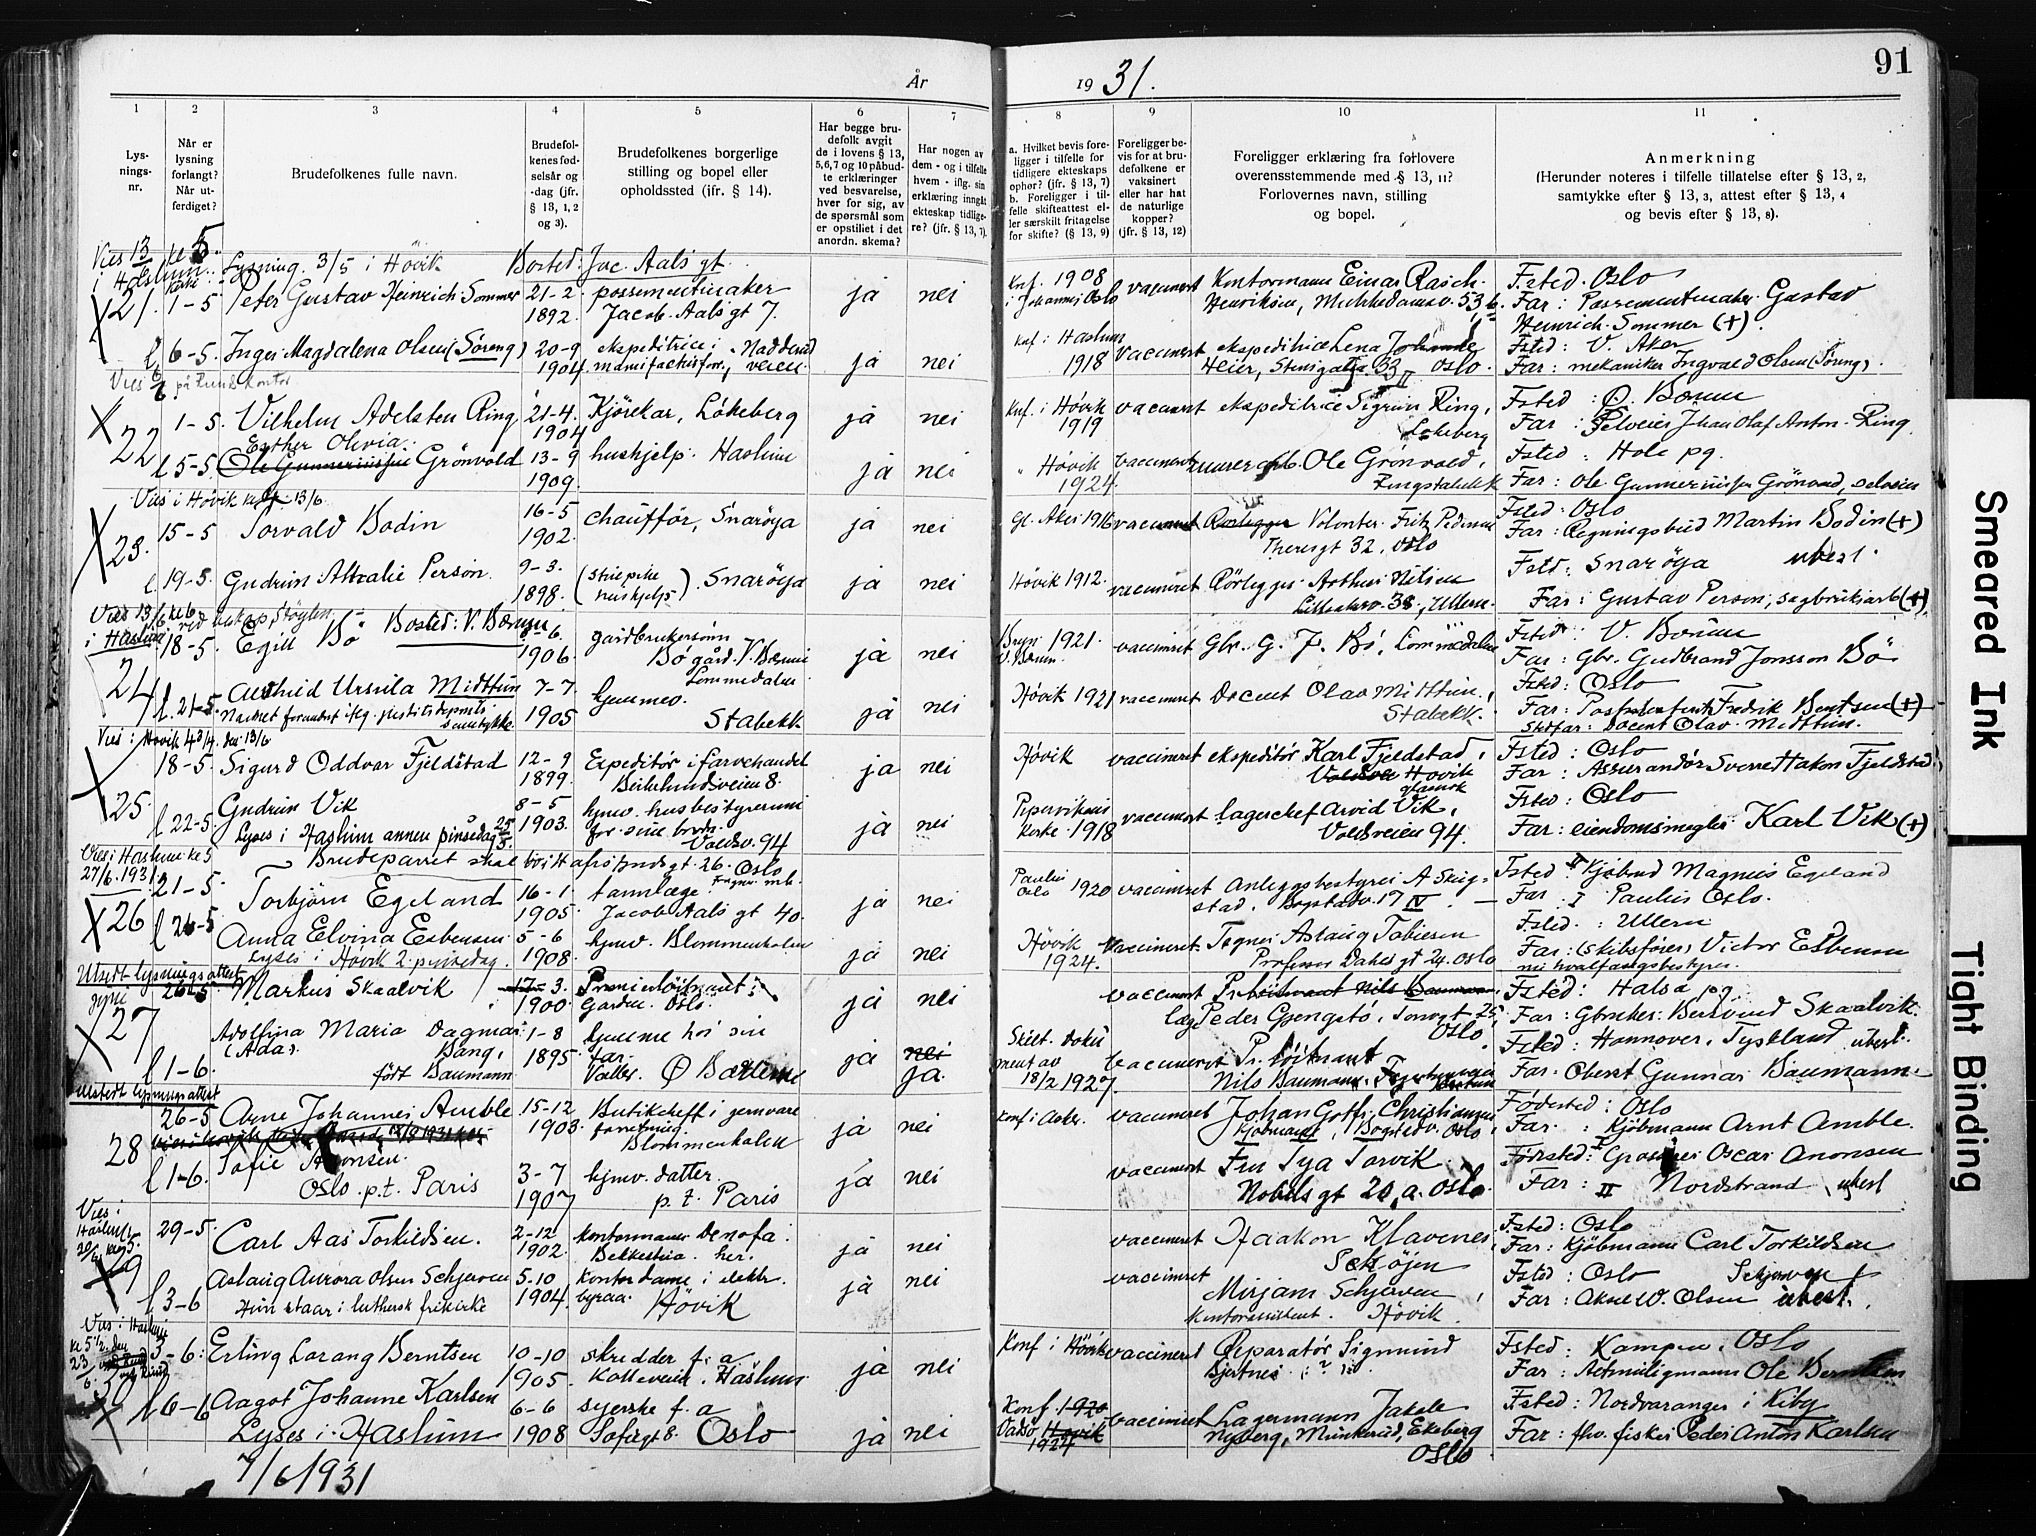 91
År
19 31.
1
2
3
4
5
6
7
8
9
10
11
Lys-
nings-
nr.
Når er
lysning
forlangt?
Når ut-
ferdiget?
Brudefolkenes fulle navn.
Brudefol-
kenes fød-
selsår og
-dag (jfr.
§ 13, 1, 2
og 3).
Brudefolkenes borgerlige
stilling og bopel eller
opholdssted (jfr. § 14).
Har begge bru-
defolk avgit
de i lovens § 13,
5,6,7 og 10 påbud-
te erklæringer
ved besvarelse,
hver for sig, av
de spørsmål som
er opstillet i det
anordn. skema?
Har nogen av
dem - og i tilfelle
hvem - iflg. sin
erklæring inngått
ekteskap tidlige-
re? (jfr. § 13, 7).
a. Hvilket bevis fore-
ligger i tilfelle for
tidligere ekteskaps
ophør? (jfr. § 13, 7)
b. Foreligger i til-
felle skifteattest el-
ler særskilt fritagelse
for skifte? (§ 13, 9)
Foreligger be-
vis for at bru-
defolkene er
vaksinert
eller har hat
de naturlige
kopper?
(jfr. § 13, 12)
Foreligger erklæring fra forlovere
overensstemmende med § 13, 11?
Forlovernes navn, stilling
og bopel.
Anmerkning
(Herunder noteres i tilfelle tillatelse efter § 13, 2,
samtykke efter § 13, 3, attest efter § 13, 4
og bevis efter § 13, 8).
Vies 13/6 kl 5
i Haslum kirke Lysning. 3/5 i Hövik Bosted: Jac. Aals gt.
21. 1-5 Peter Gustav Heinrich Sommer 21-2. 1892. possementmaker Jacob Aals gt 7. ja nei Knf. 1908 i Johannes Oslo vaccinert Kontormann Einar Rasch Henriksen, Munkedamsv. 53 b. Fsted. Oslo
Far: Possementmaker Gustav
Heinrich Sommer (+).
l 6-5. Inger Magdalena Olsen (Søreng) 20-9 1904 ekspeditrice i manufakturforr., Nadderudveien. ja nei Knf. i Haslum 1918 vaccinert ekspeditrice Lena Johanne Heier, Stensgata 33 II Oslo. Fsted: V. Aker
Far: mekaniker Ingvald Olsen (Søreng).
22 1-5. Vilhelm Adelsten Ring 21-4. 1904 Kjörekar, Lökeberg ja nei Knf. i Hövik 1919 vaccinert ekspeditrice Sigrun Ring, Lökeberg Fsted: Ø. Bærum
Far: Selveier Johan Olaf Anton Ring
l 5-5. Esther Olivia Grönvold 13-9 1909. hushjelp. Haslum ja nei " Hövik 1924. vaccinert murerarb. Ole Grönvold, Ringstabekk Fsted: Hole pg.
Far: Ole Gunneriussen Grönvold, selveier
Vies i Hövik 13/6
23. 15-5 Torvald Bodin 16-5 1902. chauffør, Snarøya ja nei Gl. Aker 1916 vaccinert Volontør Fritz Pedersen Theresgt 32, Oslo Fsted: Oslo
Far: Regningsbud Martin Bodin (+)
l 19-5. Gudrun Person. 9-3. 1898. (stuepike hushjelp). Snarøya ja nei Hövik 1912. vaccineret Rörlegger Arthur Nilsen Lilleakerv. 38, Ullern. Fsted: Snarøya ubest.
Far: Gustav Person, sagbruksarb (+).
Vies 13/6 kl 6 i Haslum
24 18-5. Egil Bö Bosted: V. Bærum 8-6. 1906. gårdbrukersønn Bö gård. V. Bærum Lommedalen ja nei Bryn 1921. V. Bærum. vaccinert Gbr. G. J. Bö, Lommedalen Fsted: V. Bærum
Far: Gbr. Gudbrand Jonsson Bö
l. 21-5. Astrid Ursula Midttun 7-7 1905 hjemmev. Stabekk ja nei Hövik 1921 vaccinert Docent Olav Midttun, Stabekk. Fsted: Oslo
Navnet forandret iflg. justitsdeparts samtykke.
Far: Fredrik Berntsen (+)
Stedfar: Docent Olav Midttun.
Vies i Hövik 4 3/4 den 13/6
25. 18-5. Sigurd Oddvar Fjeldstad 12-9 1899 Expeditör i farvehandel Birkelundsveien 8. ja nei Hövik vaccineret ekspeditör Karl Fjeldstad, Hövik glassverk Fsted: Oslo
Far: Assurandör Sverre Hakon Fjeldstad
l 22-5 Gudrun Vik 8-5 1903. hjmv. husbestyrerinne for sine brødre. Voldsv. 94 ja nei Pipervikens kirke 1918 vaccineret lagerchef Arvid Vik, Voldsveien 94. Fsted: Oslo
Lyses i Haslum annen pinsedag 25/5.
Far: eiendomsmegler Karl Vik (+)
Brudeparret skal bo i Hafrsfjordsgt. 26. Oslo
Vies i Haslum kl 5 27/6 1931
26 21-5. Torbjörn Egeland 16-1. 1905. tannlæge Jacob Aals gt 40. ja nei Paulus Oslo 1920 vaccineret Anleggsbestyrer A Skugstad. Bogstadv. 17 IV. Fsted II Kjöbmd Magnus Egeland
Far: I Paulus Oslo.
l 26-5 Anna Elvina Esbensen 5-6 1908. hjmv. Blommenholm ja nei Hövik 1924. vaccineret. Tegner Aslaug Tobiesen Professor Dahls gt 24. Oslo Fsted: Ullern
Lyses i Hövik 2. pinsedag.
Far: (skibsfører) Victor Esbensen
nu hvalfangstbestyrer.
Utstedt lysningsattest
27 26-5 Markus Skaalvik 17-3. 1900. Premierløitnant i Garden. Oslo. ja nei vaccinert læge Peder Gjengstö, Oslo Fsted: Halsa pg
Far: Gbruker Bersvend Skaalvik.
l 1-6. Adolfina Maria Dagmar (Ada). Bang, født Baumann 1-8 1895 hjemme hos sin far. Valler. Ø Bærum ja nei ja. Skilt. Dokument av 18/2 1927. vaccineret Pr. löitnant Nils Baumann. Fsted: Hannover, Tyskland ubest.
Far: Oberst Gunnar Baumann
Utstedt lysningsattest
28 26-5 Arne Johannes Amble 15-12 1903. Butikchef i jernvareforretning. Blommenholm ja nei Konf. i Asker. vaccineret Johan Gottfr. Christiansen Kjöbmand, Bogstadv. Oslo Fødested: Oslo
Far: Kjöbmann Arnt Amble.
l 1-6. Sofie Aronsen. Oslo. p.t. Paris 3-7 1907 hjmv. datter. p.t. Paris ja nei vaccinert Fru Tya Torvik Nobels gt 20, a. Oslo. Fødested: I Grosserer Oscar Aronsen
Far: II Nordstrand ubest
Vies i Haslum 20/6 kl 5.
29 29-5 Carl Aas Torkildsen. 2-12 1902. kontormann Denofa. Bekkestua. her. ja nei vaccineret Haakon Klavenes, Seksöjen Fsted: Oslo
Far: Kjöbmann Carl Torkildsen
l 3-6 Aslaug Aurora Olsen Schjerven 5-10 1904. kontordame i elektr. byraa. Hövik ja nei vaccineret Mirjam Schjerven, kontorassistent. Hövik. Fsted: Oslo Schjerven
Hun staar i luthersk frikirke
Far: Aksel W. Olsen ubest.
Vies i Haslum kl 5 1/2 den 23/6.
30 3-6: Erling Lorang Berntsen 10-10 1905. skredder f. a. Kolleveien. Haslum ja nei Konf i Hövik vaccineret Reparatör Sigmund Bjertnes Fsted: Kampen, Oslo
Far: Ole Berntsen
l 6-6 Aagot Johanne Karlsen 6-6 1908 syerske f. a Sofiegt 8. Oslo ja nei Konf. 1920 Vadsö, Hövik 1924 vaccineret Lagermann Jakob Nyberg, Munkerud, Ekeberg Oslo Fsted: Nordvaranger i Kiby
Lyses i Haslum 7/6 1931
Far: fhv. fisker Peder Anton Karlsen
Smeared Ink
Tight Binding